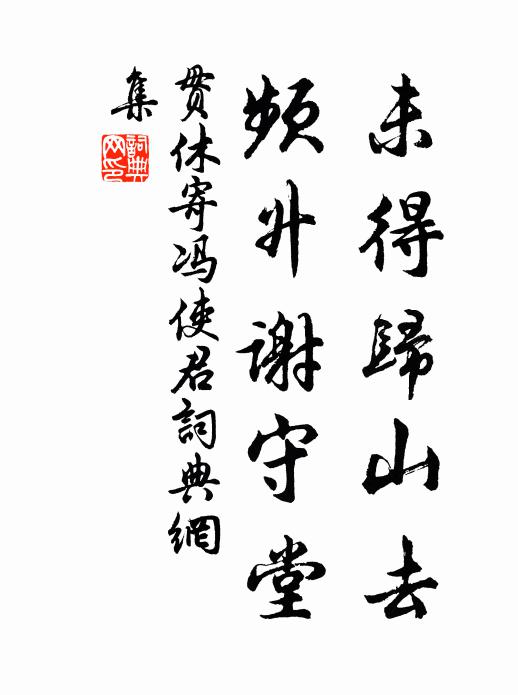 未得歸山去
頻升謝守堂
貫休寄冯使君詞典網
集
詞典网印